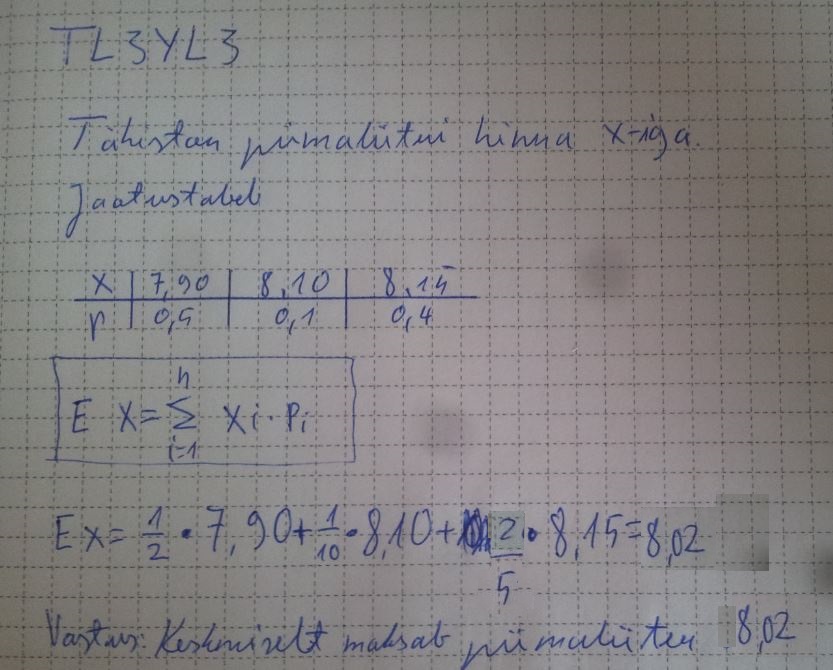 TL3YL3
Tähistan piimaliitri hinna x-iga.
Jaotustabel
x | 7,90 | 8,10 | 8,15
p | 0,5 | 0,1 | 0,4
E X = n Σ i=1 xi · Pi
Ex = 1/2 · 7,90 + 1/10 · 8,10 + 2/5 · 8,15 = 8,02
Vastus: Keskmiselt maksab piimaliiter 8,02